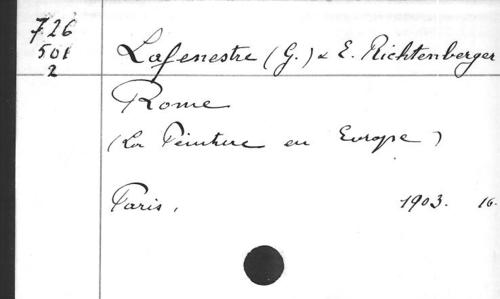 726
501
2
Lafenestre (G.) & E. Richtenberger
Rome
(La Peinture en Europe)
Paris, 1903. 16.